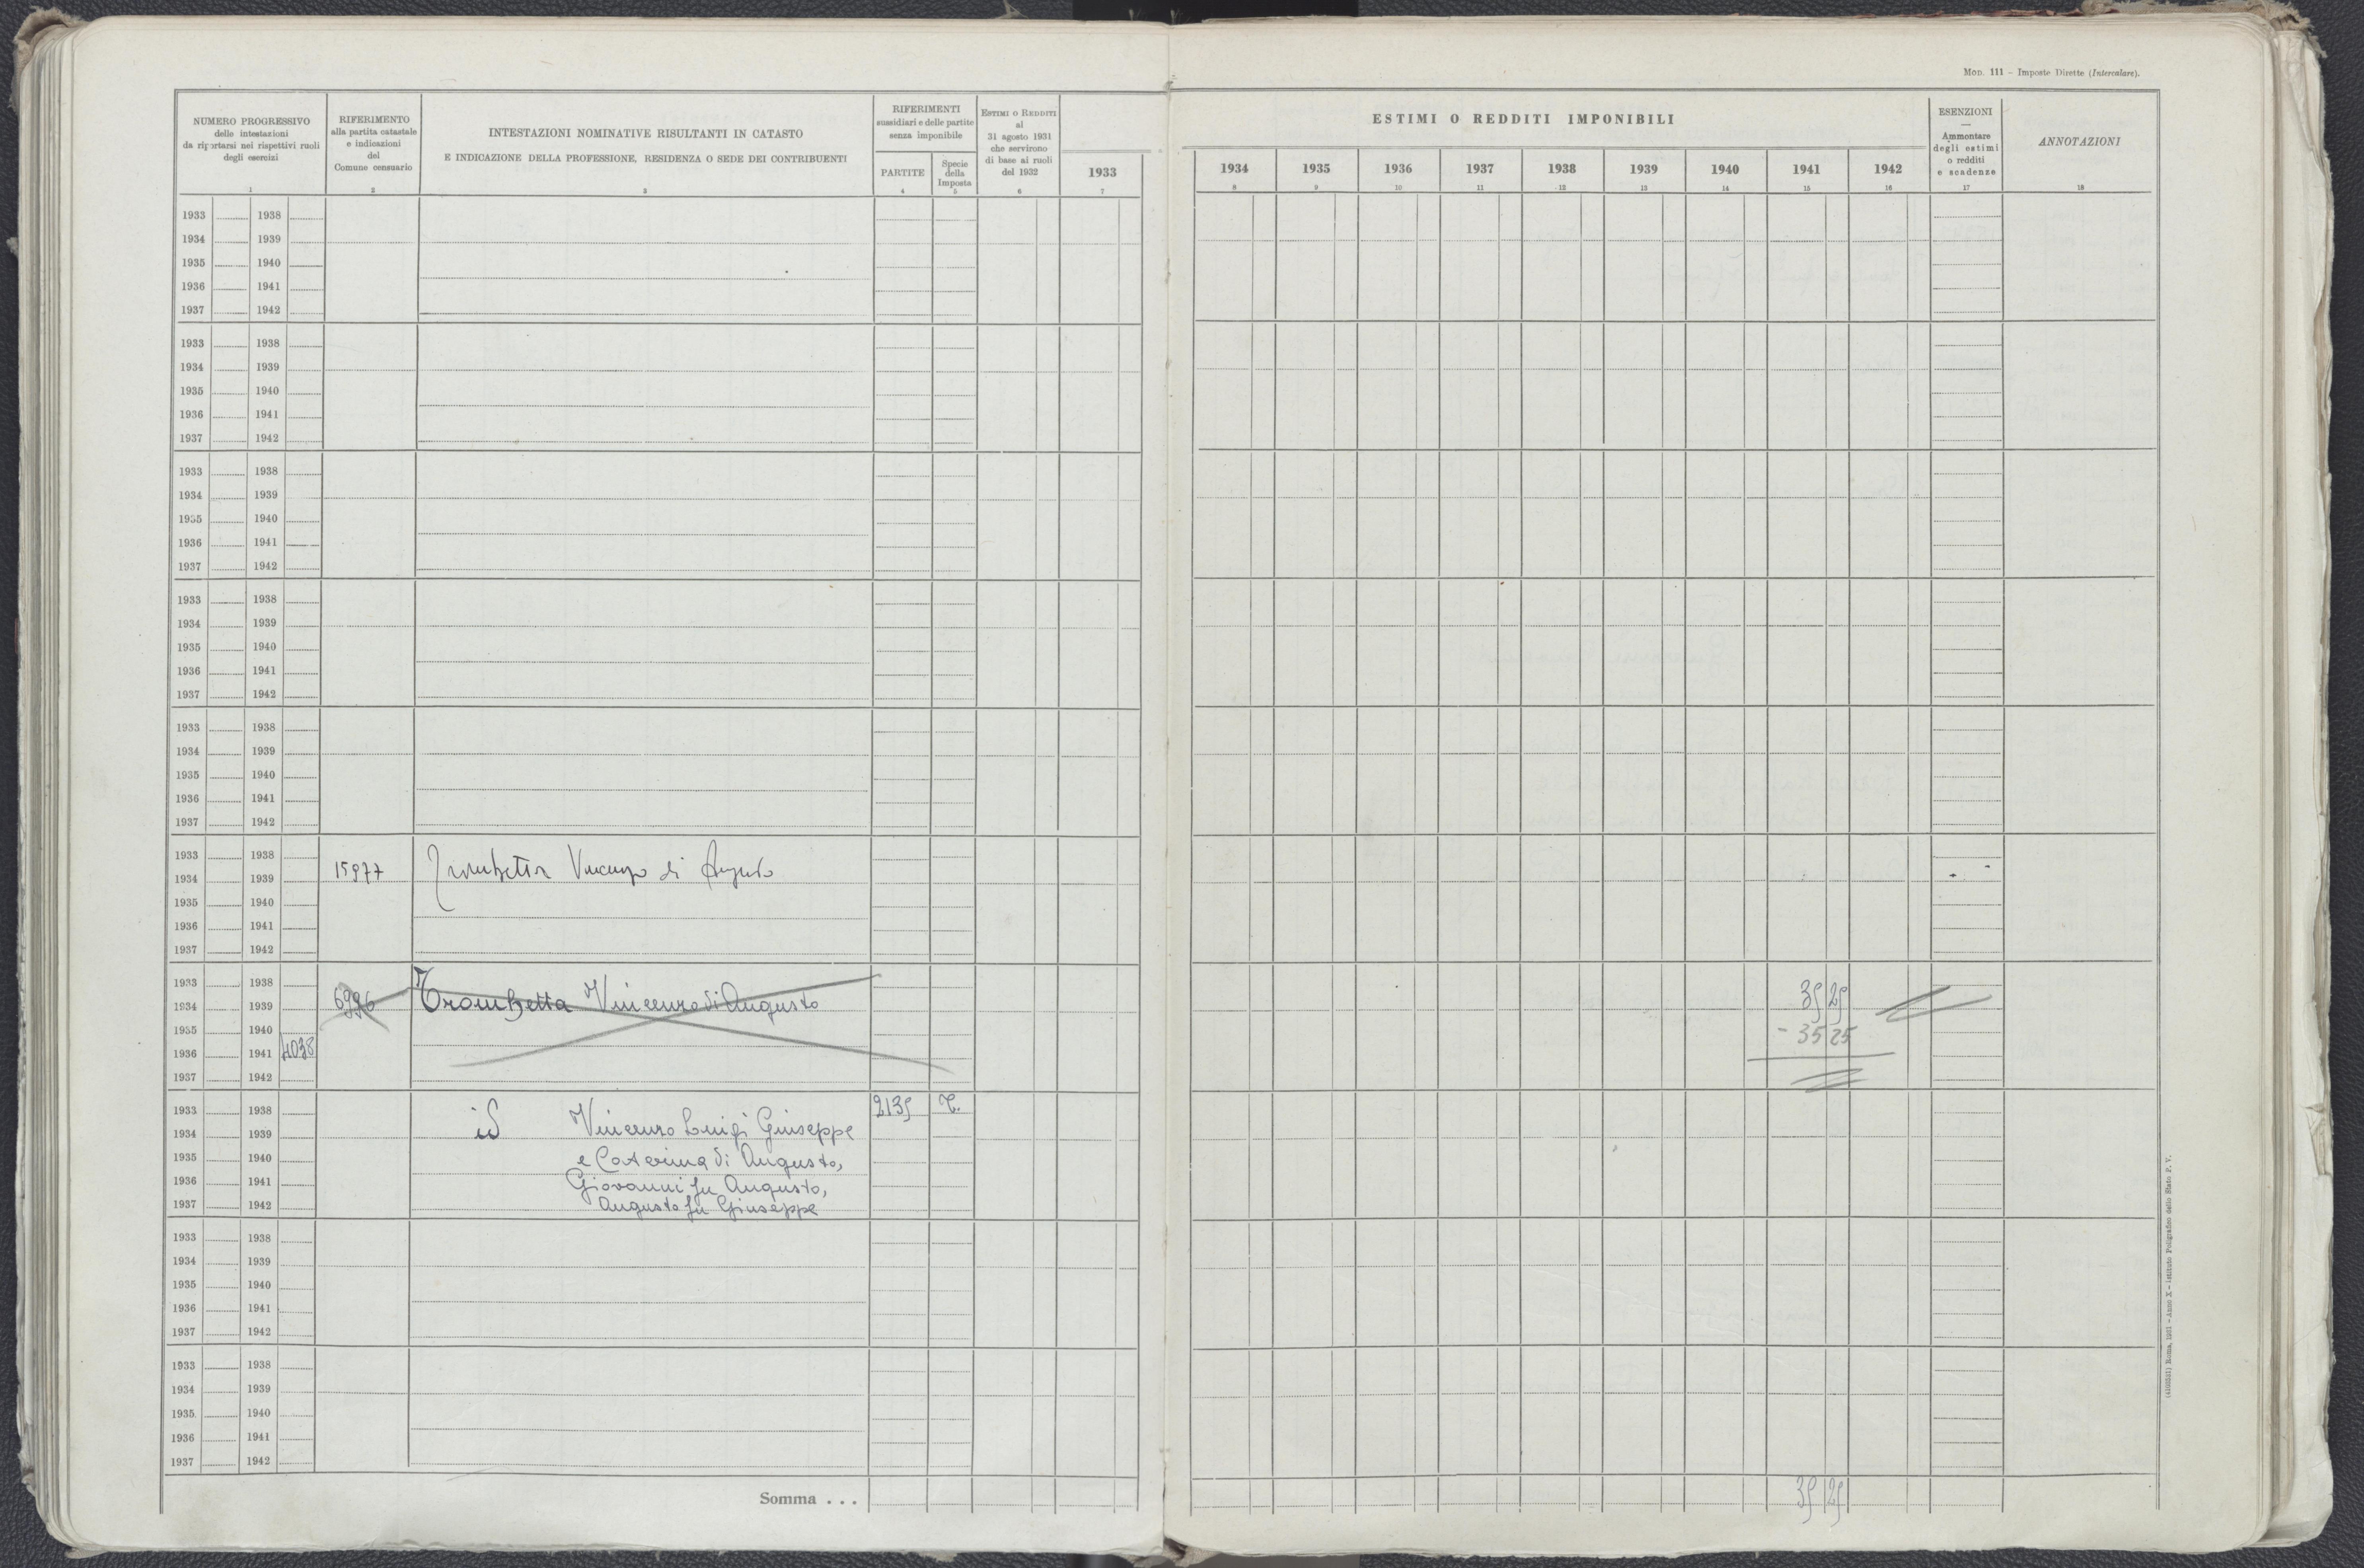 Mod. 111 - Imposte Dirette (Intercalare).
NUMERO PROGRESSIVO
delle intestazioni
da riportarsi nei rispettivi ruoli
degli esercizi
1
RIFERIMENTO
alla partita catastale
e indicazioni
del
Comune censuario
2
INTESTAZIONI NOMINATIVE RISULTANTI IN CATASTO
E INDICAZIONE DELLA PROFESSIONE, RESIDENZA O SEDE DEI CONTRIBUENTI
3
RIFERIMENTI
sussidiari e delle partite
senza imponibile
PARTITE
4
Specie
della
Imposta
5
ESTIMI O REDDITI
al
31 agosto 1931
che servirono
di base ai ruoli
del 1932
6
1933
7
ESTIMI O REDDITI IMPONIBILI
1934 1935 1936 1937 1938 1939 1940 1941 1942
8 9 10 11 12 13 14 15 16
ESENZIONI
—
Ammontare
degli estimi
o redditi
e scadenze
17
ANNOTAZIONI
18
1933 1938
1934 1939
1935 1940
1936 1941
1937 1942
1933 1938
1934 1939
1935 1940
1936 1941
1937 1942
1933 1938
1934 1939
1935 1940
1936 1941
1937 1942
1933 1938
1934 1939
1935 1940
1936 1941
1937 1942
1933 1938
1934 1939
1935 1940
1936 1941
1937 1942
1933 1938
1934 1939 15977 Trombetta Vincenzo di Augusto
1935 1940
1936 1941
1937 1942
1933 1938
1934 1939 6996 Trombetta Vincenzo di Augusto 35 25
1935 1940 - 35 25
1936 1941 4038
1937 1942
1933 1938 2135 T.
1934 1939 id Vincenzo Luigi Giuseppe
1935 1940 e Caterina di Augusto,
1936 1941 Giovanni fu Augusto,
1937 1942 Augusto fu Giuseppe
1933 1938
1934 1939
1935 1940
1936 1941
1937 1942
1933 1938
1934 1939
1935 1940
1936 1941
1937 1942
Somma . . . 35 25
Roma, 1931 - Anno X - Istituto Poligrafico dello Stato P. V.